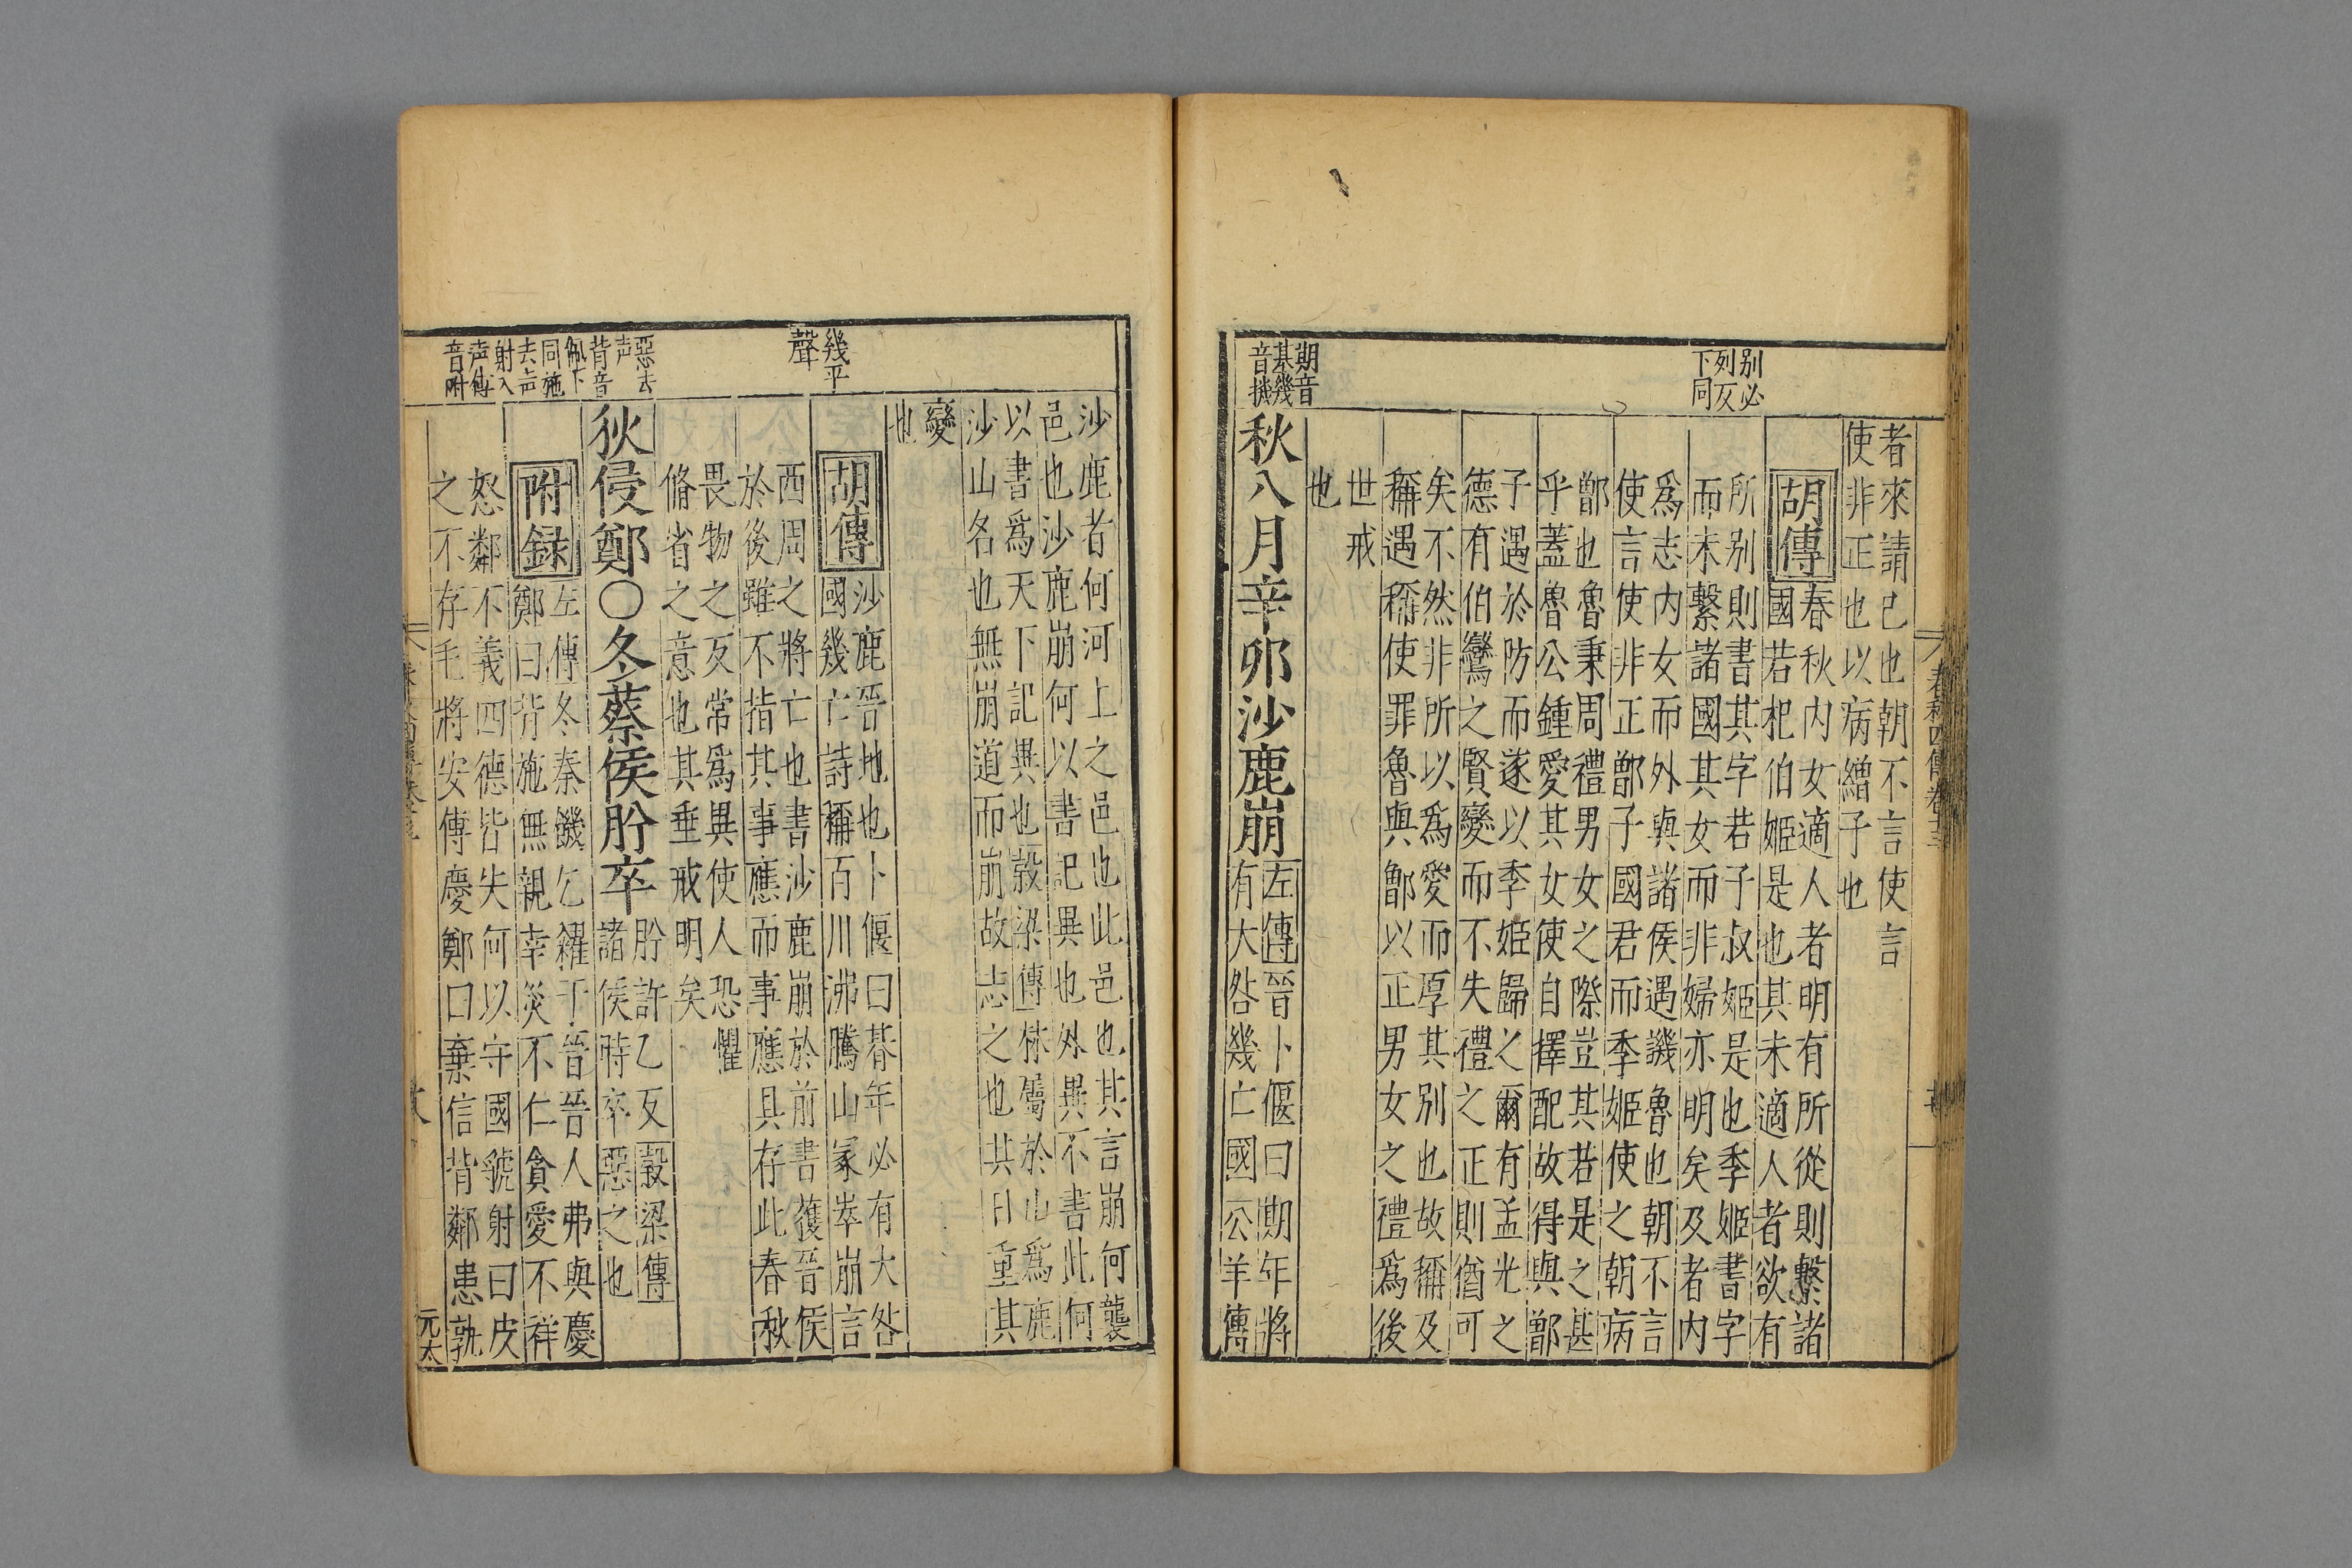 别必
列反
下同
期音
基幾
音機
春秋四傳卷十三
者來請己也朝不言使言
使非正也以病繒子也
胡傳
春秋内女適人者明有所從則繫諸
國若杞伯姬是也其未適人者欲有
所别則書其字若子叔姬是也季姬書字
而未繫諸國其女而非婦亦明矣及者内
爲志内女而外與諸侯遇譏魯也朝不言
使言使非正鄫子國君而季姬使之朝病
鄫也魯秉周禮男女之際豈其若是之甚
乎蓋魯公鍾愛其女使自擇配故得與鄫
子遇於防而遂以季姬歸之爾有孟光之
德有伯鸞之賢變而不失禮之正則猶可
矣不然非所以爲愛而厚其别也故稱及
稱遇稱使罪魯與鄫以正男女之禮爲後
世戒
也
秋八月辛卯沙鹿崩
左傳晉卜偃曰期年將
有大咎幾亡國公羊傳
幾平
聲
惡去
声
背音
佩下
同施
去声
射入
声傅
音附
沙鹿者何河上之邑也此邑也其言崩何襲
邑也沙鹿崩何以書記異也外異不書此何
以書爲天下記異也穀梁傳林屬於山爲鹿
沙山名也無崩道而崩故志之也其日重其
變
也
胡傳
沙鹿晉地也卜偃曰朞年必有大咎
國幾亡詩稱百川沸騰山冢崒崩言
西周之將亡也書沙鹿崩於前書獲晉侯
於後雖不指其事應而事應具存此春秋
畏物之反常爲異使人恐懼
脩省之意也其垂戒明矣
狄侵鄭○冬蔡侯肸卒
肸許乙反穀梁傳
諸侯時卒惡之也
附録
左傳冬秦饑乞糴于晉晉人弗與慶
鄭曰背施無親幸災不仁貪愛不祥
怒鄰不義四德皆失何以守國虢射曰皮
之不存毛將安傅慶鄭曰棄信背鄰患孰
元太